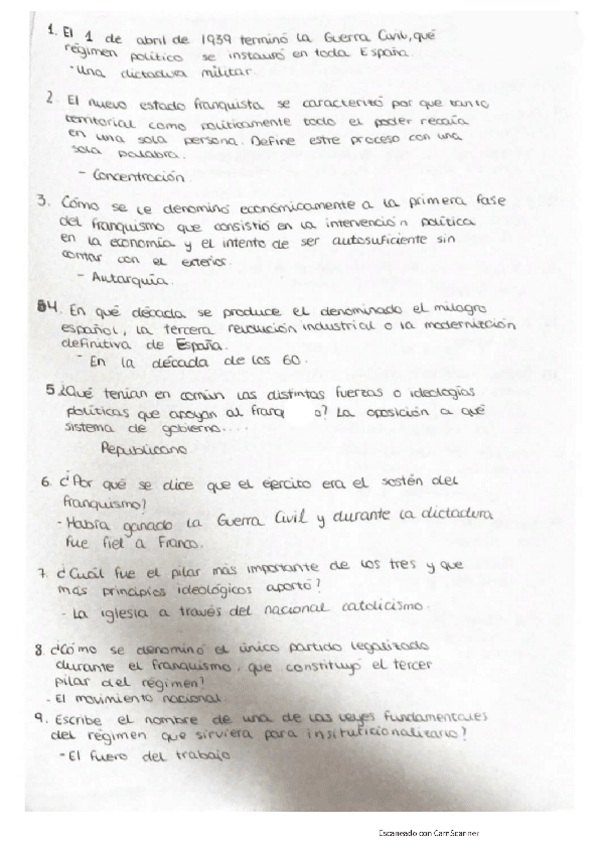 1. El 1 de abril de 1939 terminó la Guerra Civil, qué
régimen político se instauró en toda España.
- Una dictadura militar.
2. El nuevo estado franquista se caracterizó por que tanto
territorial como políticamente todo el poder recaía
en una sola persona. Define estre proceso con una
sola palabra.
- Concentración
3. Cómo se le denominó económicamente a la primera fase
del franquismo que consistió en la intervención política
en la economía y el intento de ser autosuficiente sin
contar con el exterior.
- Autarquía.
4. En qué década se produce el denominado el milagro
español, la tercera revolución industrial o la modernización
definitiva de España.
- En la década de los 60.
5 ¿Qué tenían en común las distintas fuerzas o ideologías
políticas que apoyan al franq o? La oposición a qué
sistema de gobierno....
Republicano
6. ¿Por qué se dice que el ejército era el sostén del
franquismo?
- Había ganado la Guerra Civil y durante la dictadura
fue fiel a Franco.
7. ¿Cuál fue el pilar más importante de los tres y que
más principios ideológicos aportó?
- La iglesia a través del nacional catolicismo.
8. ¿Cómo se denominó el único partido legalizado
durante el franquismo, que constituyó el tercer
pilar del régimen?
- El movimiento nacional.
9. Escribe el nombre de una de las leyes fundamentales
del régimen que sirviera para institucionalizarlo?
- El fuero del trabajo
Escaneado con CamScanner